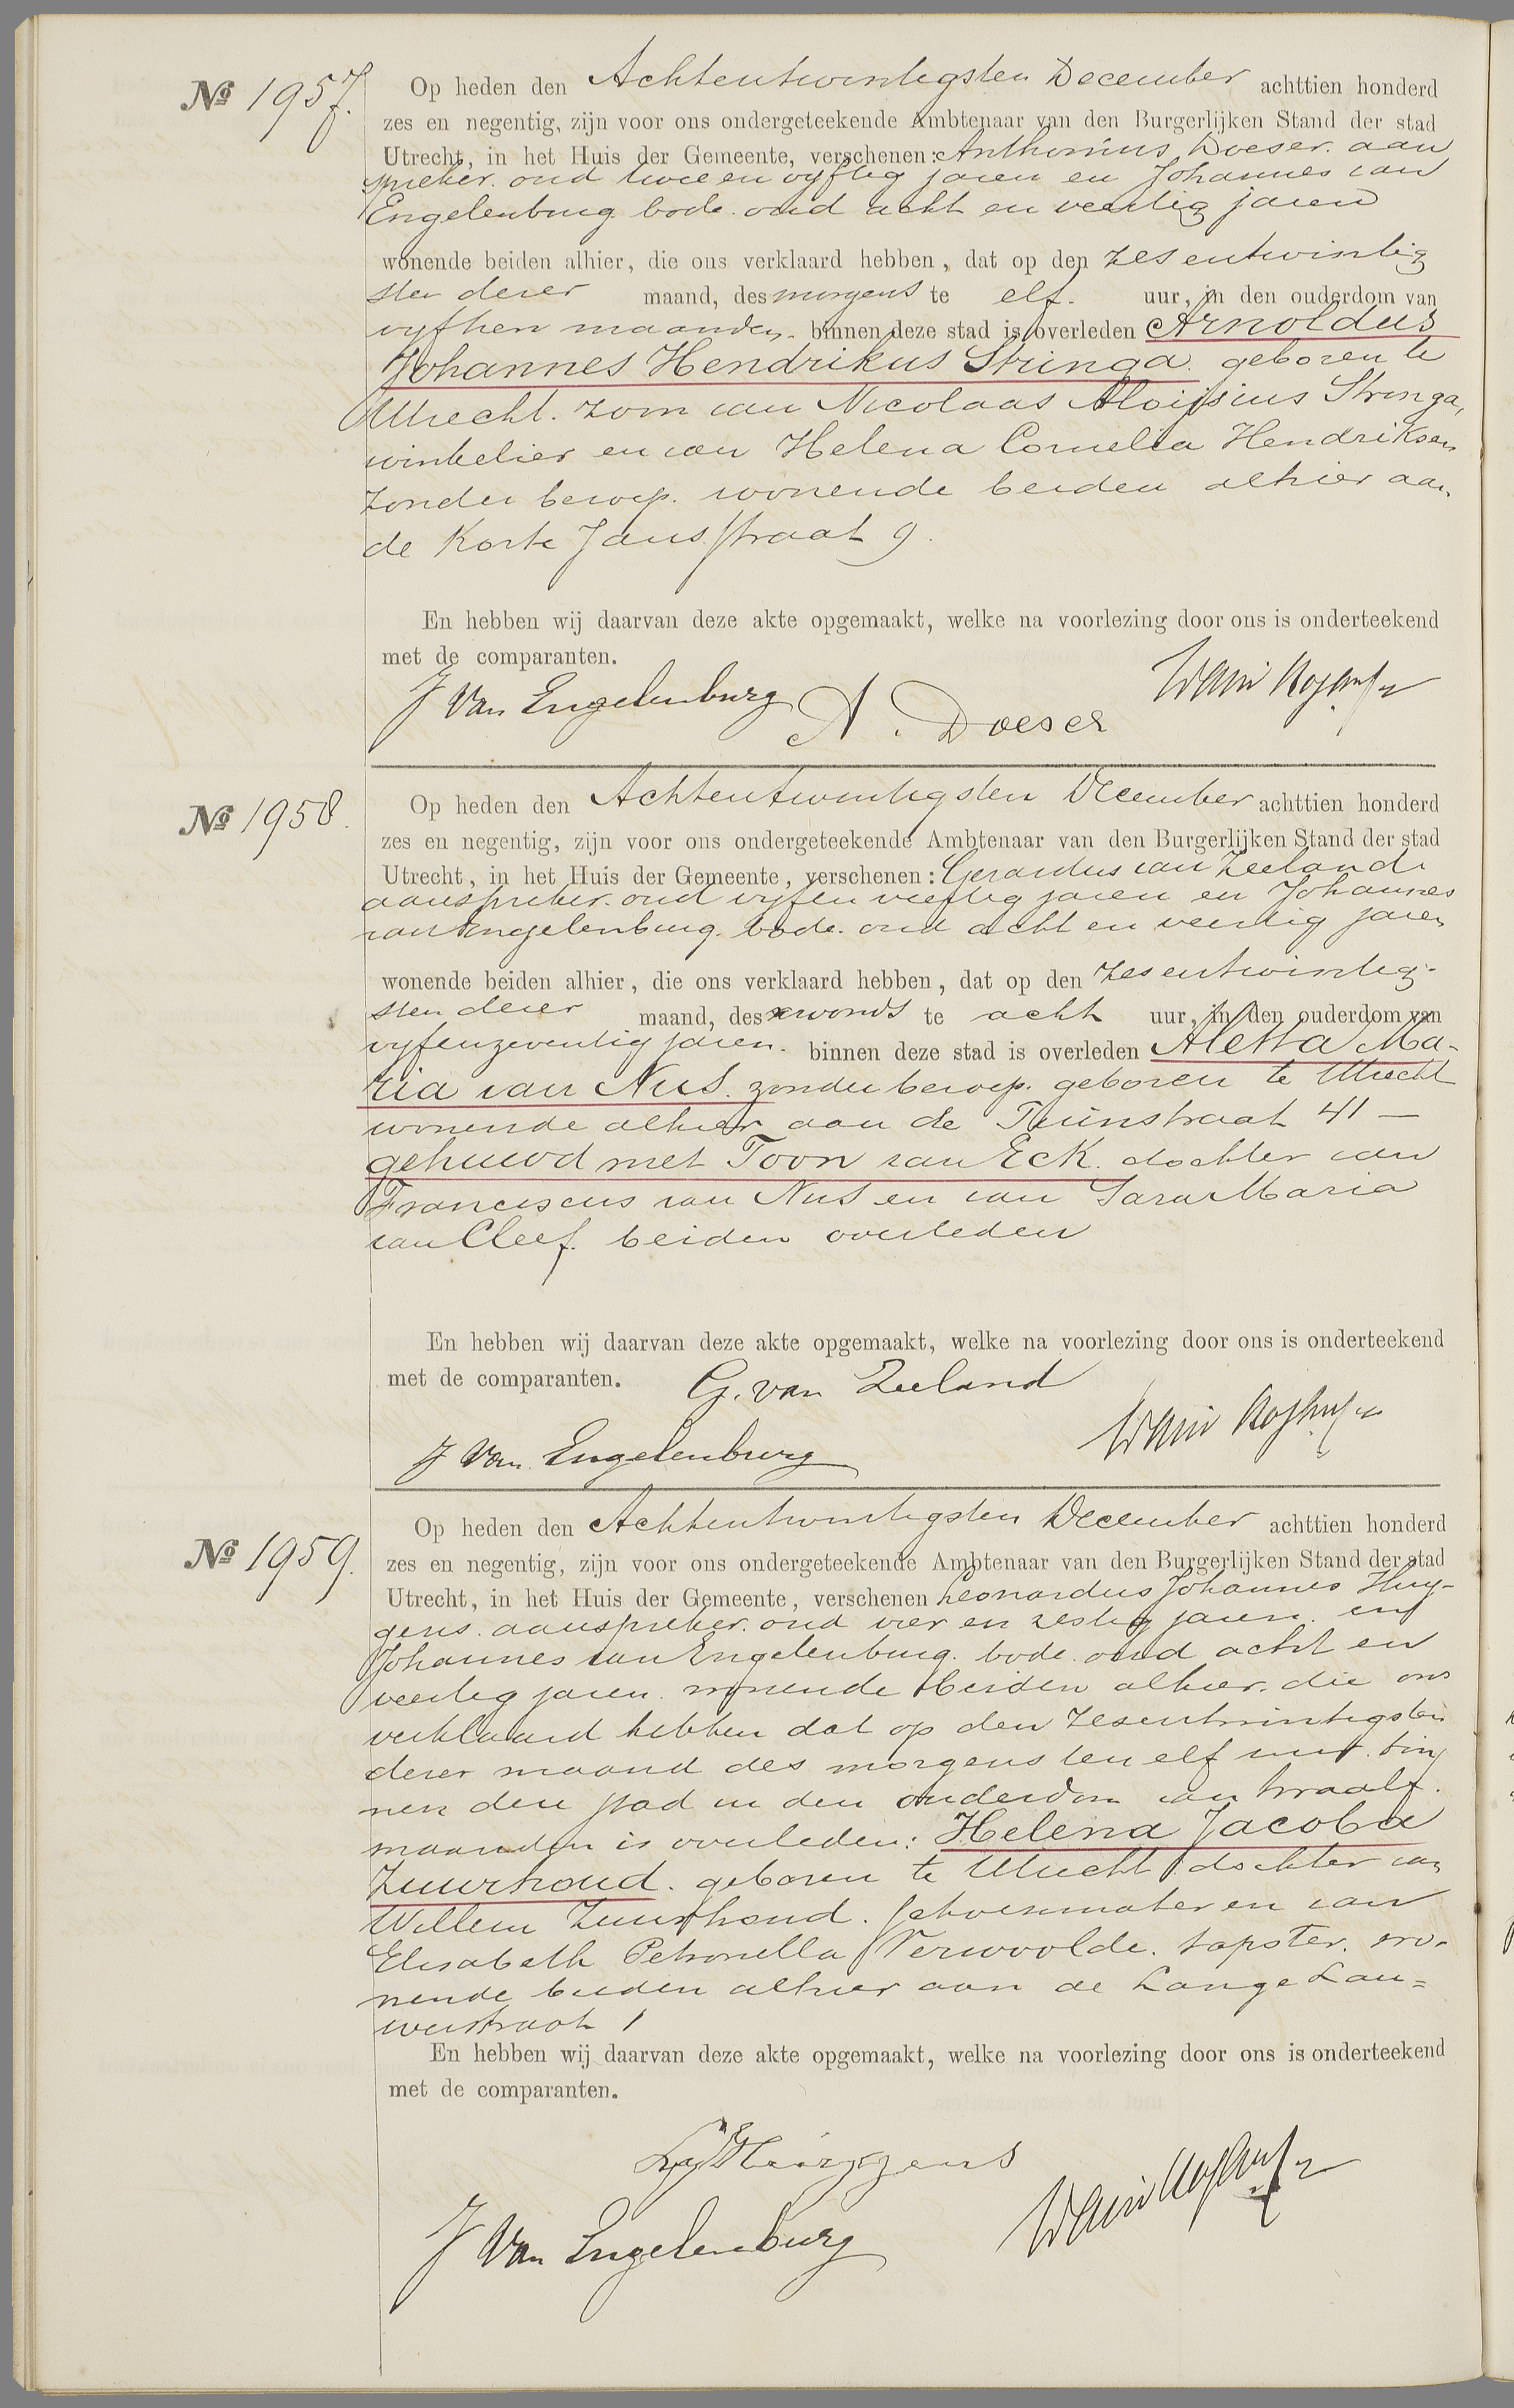 № 1957. Op heden den Achtentwintigsten December achttien honderd
zes en negentig, zijn voor ons ondergeteekende Ambtenaar van den Burgerlijken Stand der stad
Utrecht, in het Huis der Gemeente, verschenen: Anthonius Doeser. aan
spreker. oud twee en vyftig jaren en Johannes van
Engelenburg bode. oud acht en veertig jaren
wonende beiden alhier, die ons verklaard hebben, dat op den zesentwintig
sten dezer maand, des morgens te elf. uur, in den ouderdom van
vyftien maanden. binnen deze stad is overleden Arnoldus
Johannes Hendrikus Stringa. geboren te
Utrecht. zoon van Nicolaas Aloijsius Stringa,
winkelier en van Helena Cornelia Hendriksen
zonder beroep. wonende beiden alhier aan
de Korte Jansstraat 9.
En hebben wij daarvan deze akte opgemaakt, welke na voorlezing door ons is onderteekend
met de comparanten.
J Van Engelenburg A. Doeser
№ 1958. Op heden den Achtentwintigsten December achttien honderd
zes en negentig, zijn voor ons ondergeteekende Ambtenaar van den Burgerlijken Stand der stad
Utrecht, in het Huis der Gemeente, verschenen: Gerardus van Zeeland.
aanspreker. oud vyfen veertig jaren en Johannes
van Engelenburg. bode. oud acht en veertig jaren
wonende beiden alhier, die ons verklaard hebben, dat op den zesentwintig-
sten dezer maand, des avonds te acht uur, in den ouderdom van
vyfenzeventig jaren. binnen deze stad is overleden Aletta Ma-
ria van Nus. zonder beroep. geboren te Utrecht
wonende alhier aan de Tuinstraat 41 —
gehuwd met Toon van Eck. dochter van
Franciscus van Nus en van Sara Maria
van Cleef. beiden overleden
En hebben wij daarvan deze akte opgemaakt, welke na voorlezing door ons is onderteekend
met de comparanten. G. van Zeeland
J Van Engelenburg
№ 1959. Op heden den Achtentwintigsten December achttien honderd
zes en negentig, zijn voor ons ondergeteekende Ambtenaar van den Burgerlijken Stand der stad
Utrecht, in het Huis der Gemeente, verschenen Leonardus Johannes Huy-
gens. aanspreker. oud vier en zestig jaren. en
Johannes van Engelenburg. bode. oud acht en
veertig jaren. wonende beiden alhier. die ons
verklaard hebben dat op den zesentwintigsten
dezer maand des morgens ten elf uur. bin
nen deze stad in den ouderdom van twaalf.
maanden is overleden: Helena Jacoba
Zuurhoud. geboren te Utrecht dochter van
Willem Zuurhoud. schoenmaker en van
Elisabeth Petronella Verwoolde. tapster. wo-
nende beiden alhier aan de Lange Lau=
werstraat 1
En hebben wij daarvan deze akte opgemaakt, welke na voorlezing door ons is onderteekend
met de comparanten.
Huijgens
J Van Engelenburg